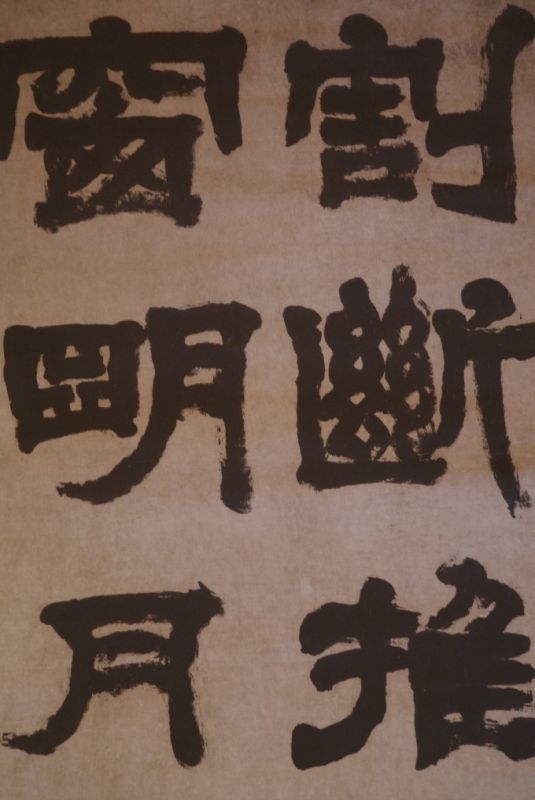 割斷推
窗明月